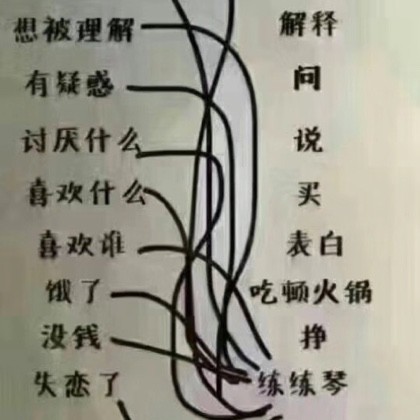 想被理解 解释
有疑惑 问
讨厌什么 说
喜欢什么 买
喜欢谁 表白
饿了 吃顿火锅
没钱 挣
失恋了 练练琴